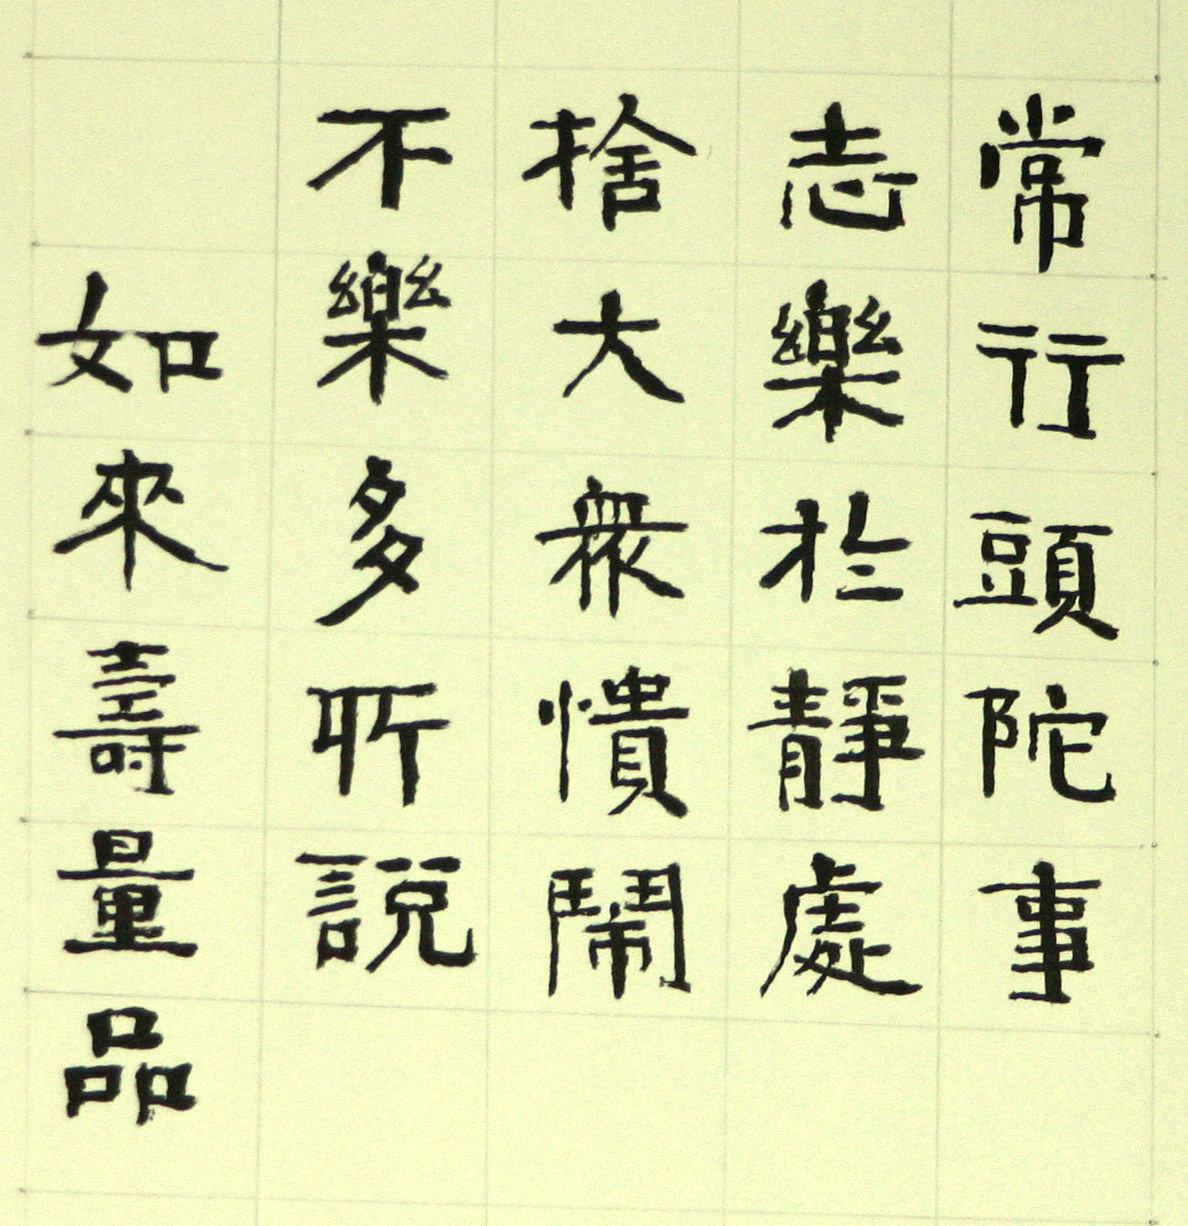 常行頭陀事
志樂於靜處
捨大衆憒鬧
不樂多所說
如來壽量品